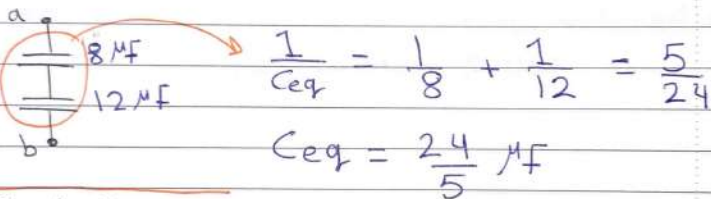 a
8 μf
12 μf
b
1/Ceq = 1/8 + 1/12 = 5/24
Ceq = 24/5 μf